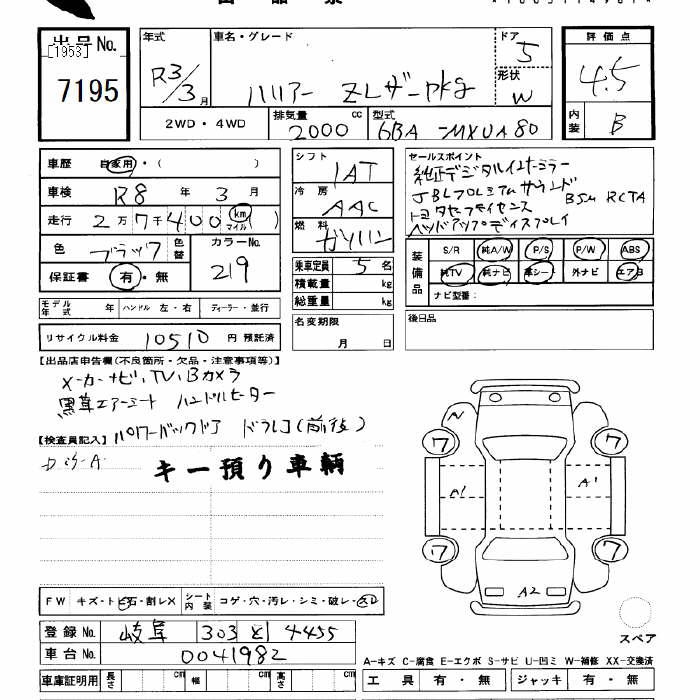 出品No.
[1953]
7195
年式
R3/3月
車名・グレード
ハリアー Zレザーpkg
ドア
5
形状
W
評価点
4.5
内装
B
2WD・4WD
排気量
2000 cc
型式
6BA-MXUA80
車歴 自家用・( )
車検 R8年 3月
走行 2万7千400 km マイル
色 ブラック 色替
カラーNo.
219
保証書 有・無
モデル年式 年 ハンドル 左・右 ディーラー・並行
リサイクル料金 10510 円 預託済
シフト
IAT
冷房
AAC
燃料
ガソリン
乗車定員 5名
積載量 kg
総重量 kg
名変期限
月 日
セールスポイント
純正デジタルインナーミラー
JBLプレミアムサウンド
BSM RCTA
トヨタセーフティセンス
ヘッドアップディスプレイ
装備品
S/R 純A/W P/S P/W ABS
純TV 純ナビ 革シート 外ナビ エアB
ナビ型番:
後日品
【出品店申告欄(不良箇所・欠品・注意事項等)】
メーカーナビ,TV,Bカメラ
黒革エアーシート ハンドルヒーター
パワーバックドア ドラレコ(前後)
【検査員記入】
キー預り車輌
ワ ワ
A1 A1
ワ ワ
A2
スペア
FW キズ・トビ石・割レX シート内装 コゲ・穴・汚レ・シミ・破レ・スレ
登録No. 岐阜 303 と 4455
車台No. 0041982
車庫証明用 長さ cm 幅 cm 高さ cm
A-キズ C-腐食 E-エクボ S-サビ U-凹ミ W-補修 XX-交換済
工具 有・無 ジャッキ 有・無